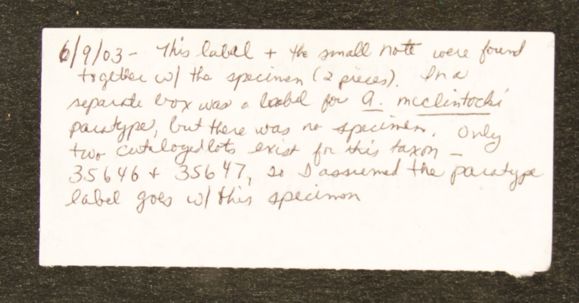 6/9/03 - This label + the small note were found
together w/ the specimen (2 pieces). In a
separate box was a label for A. mcclintocki
paratype, but there was no specimen. Only
two cataloged lots exist for this taxon -
35646 + 35647, so I assumed the paratype
label goes w/ this specimen